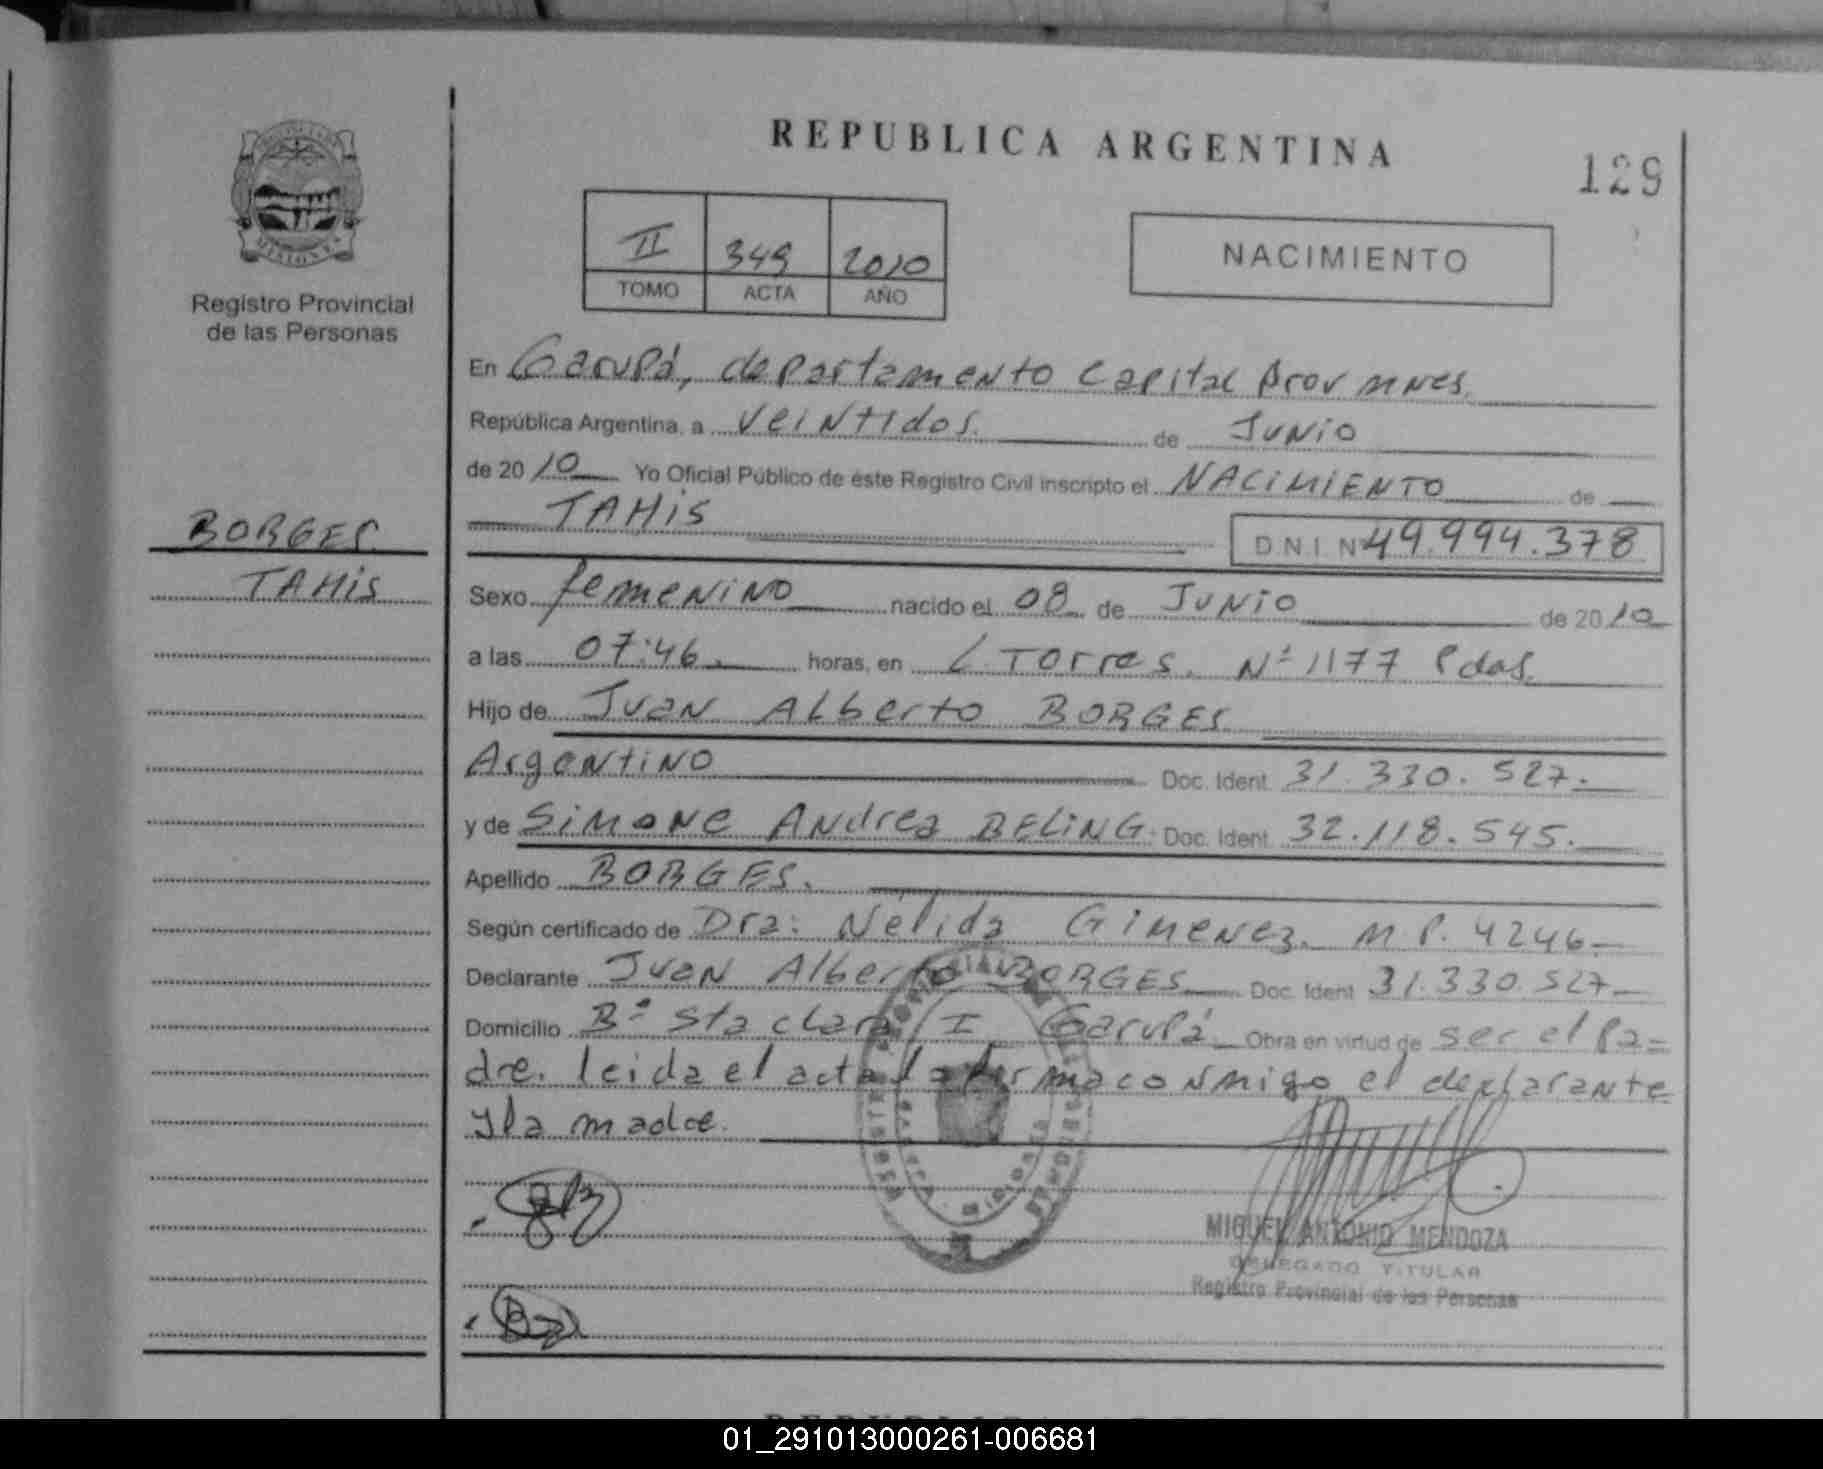 REPUBLICA ARGENTINA
129
II 349 2010
TOMO ACTA AÑO
NACIMIENTO
MISIONES
Registro Provincial
de las Personas
BORGES
TAHIS
En Garupá, departamento Capital Prov mnes.
República Argentina, a veintidos. de Junio
de 2010 Yo Oficial Público de éste Registro Civil inscripto el NACIMIENTO de
TAHIS D.N.I. Nº 49.994.378
Sexo femenino nacido el 08 de Junio de 2010
a las 07:46. horas, en L. Torres. Nº 1177 Pdas.
Hijo de Juan Alberto BORGES
Argentino Doc. Ident. 31.330.527.
y de Simone Andrea BELING. Doc. Ident. 32.118.545.
Apellido BORGES.
Según certificado de Dra: Nélida Gimenez. M.P. 4246
Declarante Juan Alberto BORGES Doc. Ident 31.330.527
Domicilio Bº Sta clara I Garupá Obra en virtud de ser el Pa=
dre. leida el acta la firma conmigo el declarante
y la madre.
MIGUEL ANTONIO MENDOZA
DELEGADO TITULAR
Registro Provincial de las Personas
01_291013000261-006681